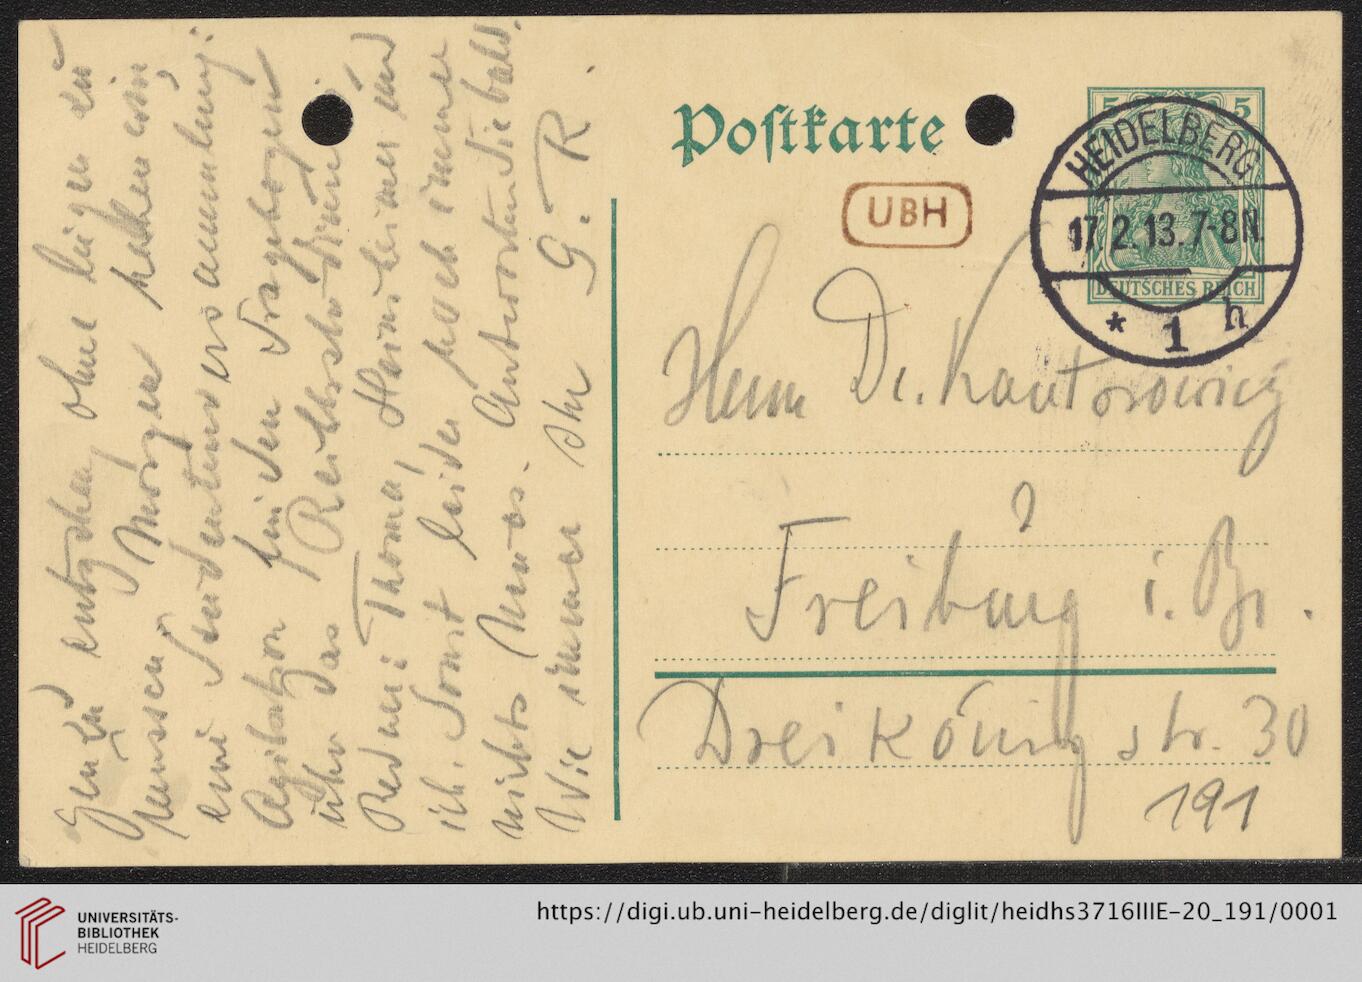 ohne Lügen zu
Morgen haben wir
eine Studentenversammlung:
Agitation für den Fragebogen
über das
Redner: Thoma, und
ich. Sonst leider noch immer
nichts Neues. Antworten Sie bald.
Wie immer Ihr G. R.
Postkarte
UBH
5 5
DEUTSCHES REICH
HEIDELBERG
17.2.13.7-8N.
* 1 h
Herrn Dr. Kantorowicz
Freiburg i. Br.
Dreikönigstr. 30
191
UNIVERSITÄTS-
BIBLIOTHEK
HEIDELBERG
https://digi.ub.uni-heidelberg.de/diglit/heidhs3716IIIE-20_191/0001